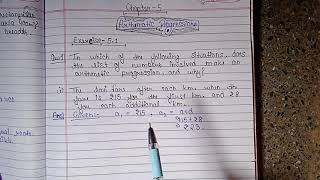 Chapter-5
Arithmetic Progressions
Exercise-5.1
Que1 In which of the following situations, does
the list of numbers involved make an
arithmetic progression, and why?
(i) The taxi fare after each km. when the
fare is ₹15 for the first km. and ₹8
for each additional km.
Ans) Given:- a₁ = ₹15, a₂ = a+d
₹15+₹8
₹23.